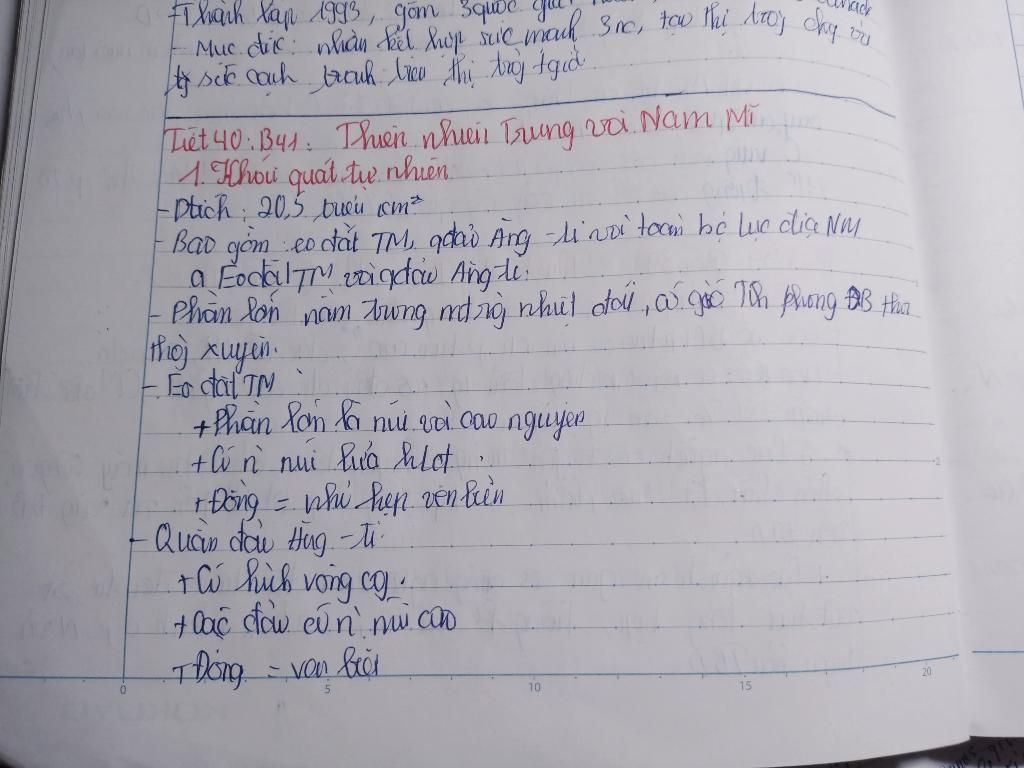 -Thành lập 1993, gồm 3 quốc gia
- Mục đíc: nhằm kết hợp sức mạnh 3 nc, tạo thị trg chug và
sức cạnh tranh trên thị trg tgiới
Tiết 40: B41: Thiên nhiên Trung và Nam Mĩ
1. Khái quát tự nhiên
- Dtích: 20,5 triệu km²
- Bao gồm: eo đất TM, qđảo Ăng-ti và toàn bộ lục địa NM
a Eo đất TM và qđảo Ăng-ti.
- Phần lớn nằm trong mtrg nhiệt đới, có gió Tín phong ĐB thổi
thg xuyên.
- Eo đất TM
+ Phần lớn là núi và cao nguyên
+ Có n núi lửa hđ.
+ Đồng = nhỏ hẹp ven biển
- Quần đảo Ăng-ti.
+ Có hình vòng cg.
+ Các đảo có n núi cao
+ Đồng = ven biển
0 5 10 15 20